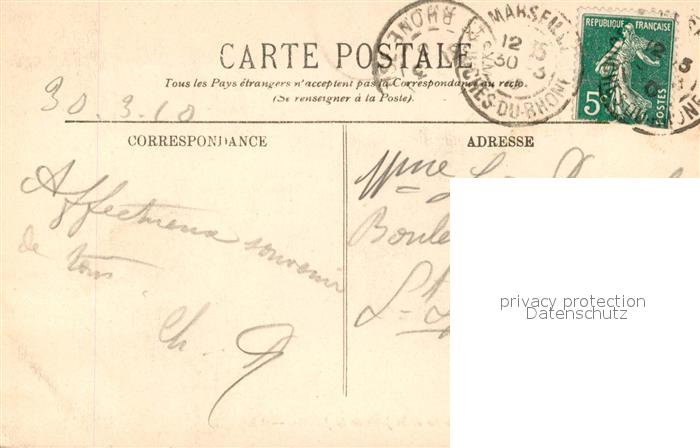 CARTE POSTALE
Tous les Pays étrangers n'acceptent pas la Correspondance au recto.
(Se renseigner à la Poste).
MARSEILLE
12 15
30 3
BOUCHES-DU-RHONE
RHONE
REPUBLIQUE FRANÇAISE
5
POSTES
30.3.10
CORRESPONDANCE
ADRESSE
Affectueux souvenir
de tous
Ch.
Mme
Boule
St
privacy protection
Datenschutz